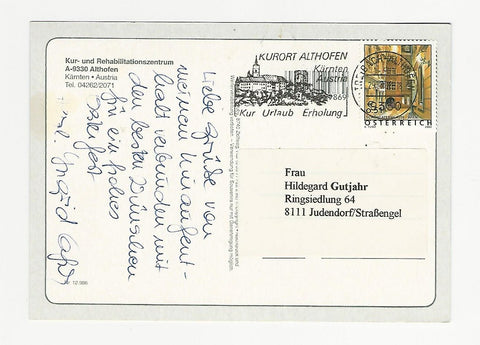 Kur- und Rehabilitationszentrum
A-9330 Althofen
Kärnten • Austria
Tel. 04262/2071
Liebe Grüße von
meinem Kuraufent-
halt verbunden mit
den besten Wünschen
für ein frohes
Osterfest
Ingrid
KURORT ALTHOFEN
Kärnten
Austria
Kur Urlaub Erholung
ÖSTERREICH
Frau
Hildegard Gutjahr
Ringsiedlung 64
8111 Judendorf/Straßengel